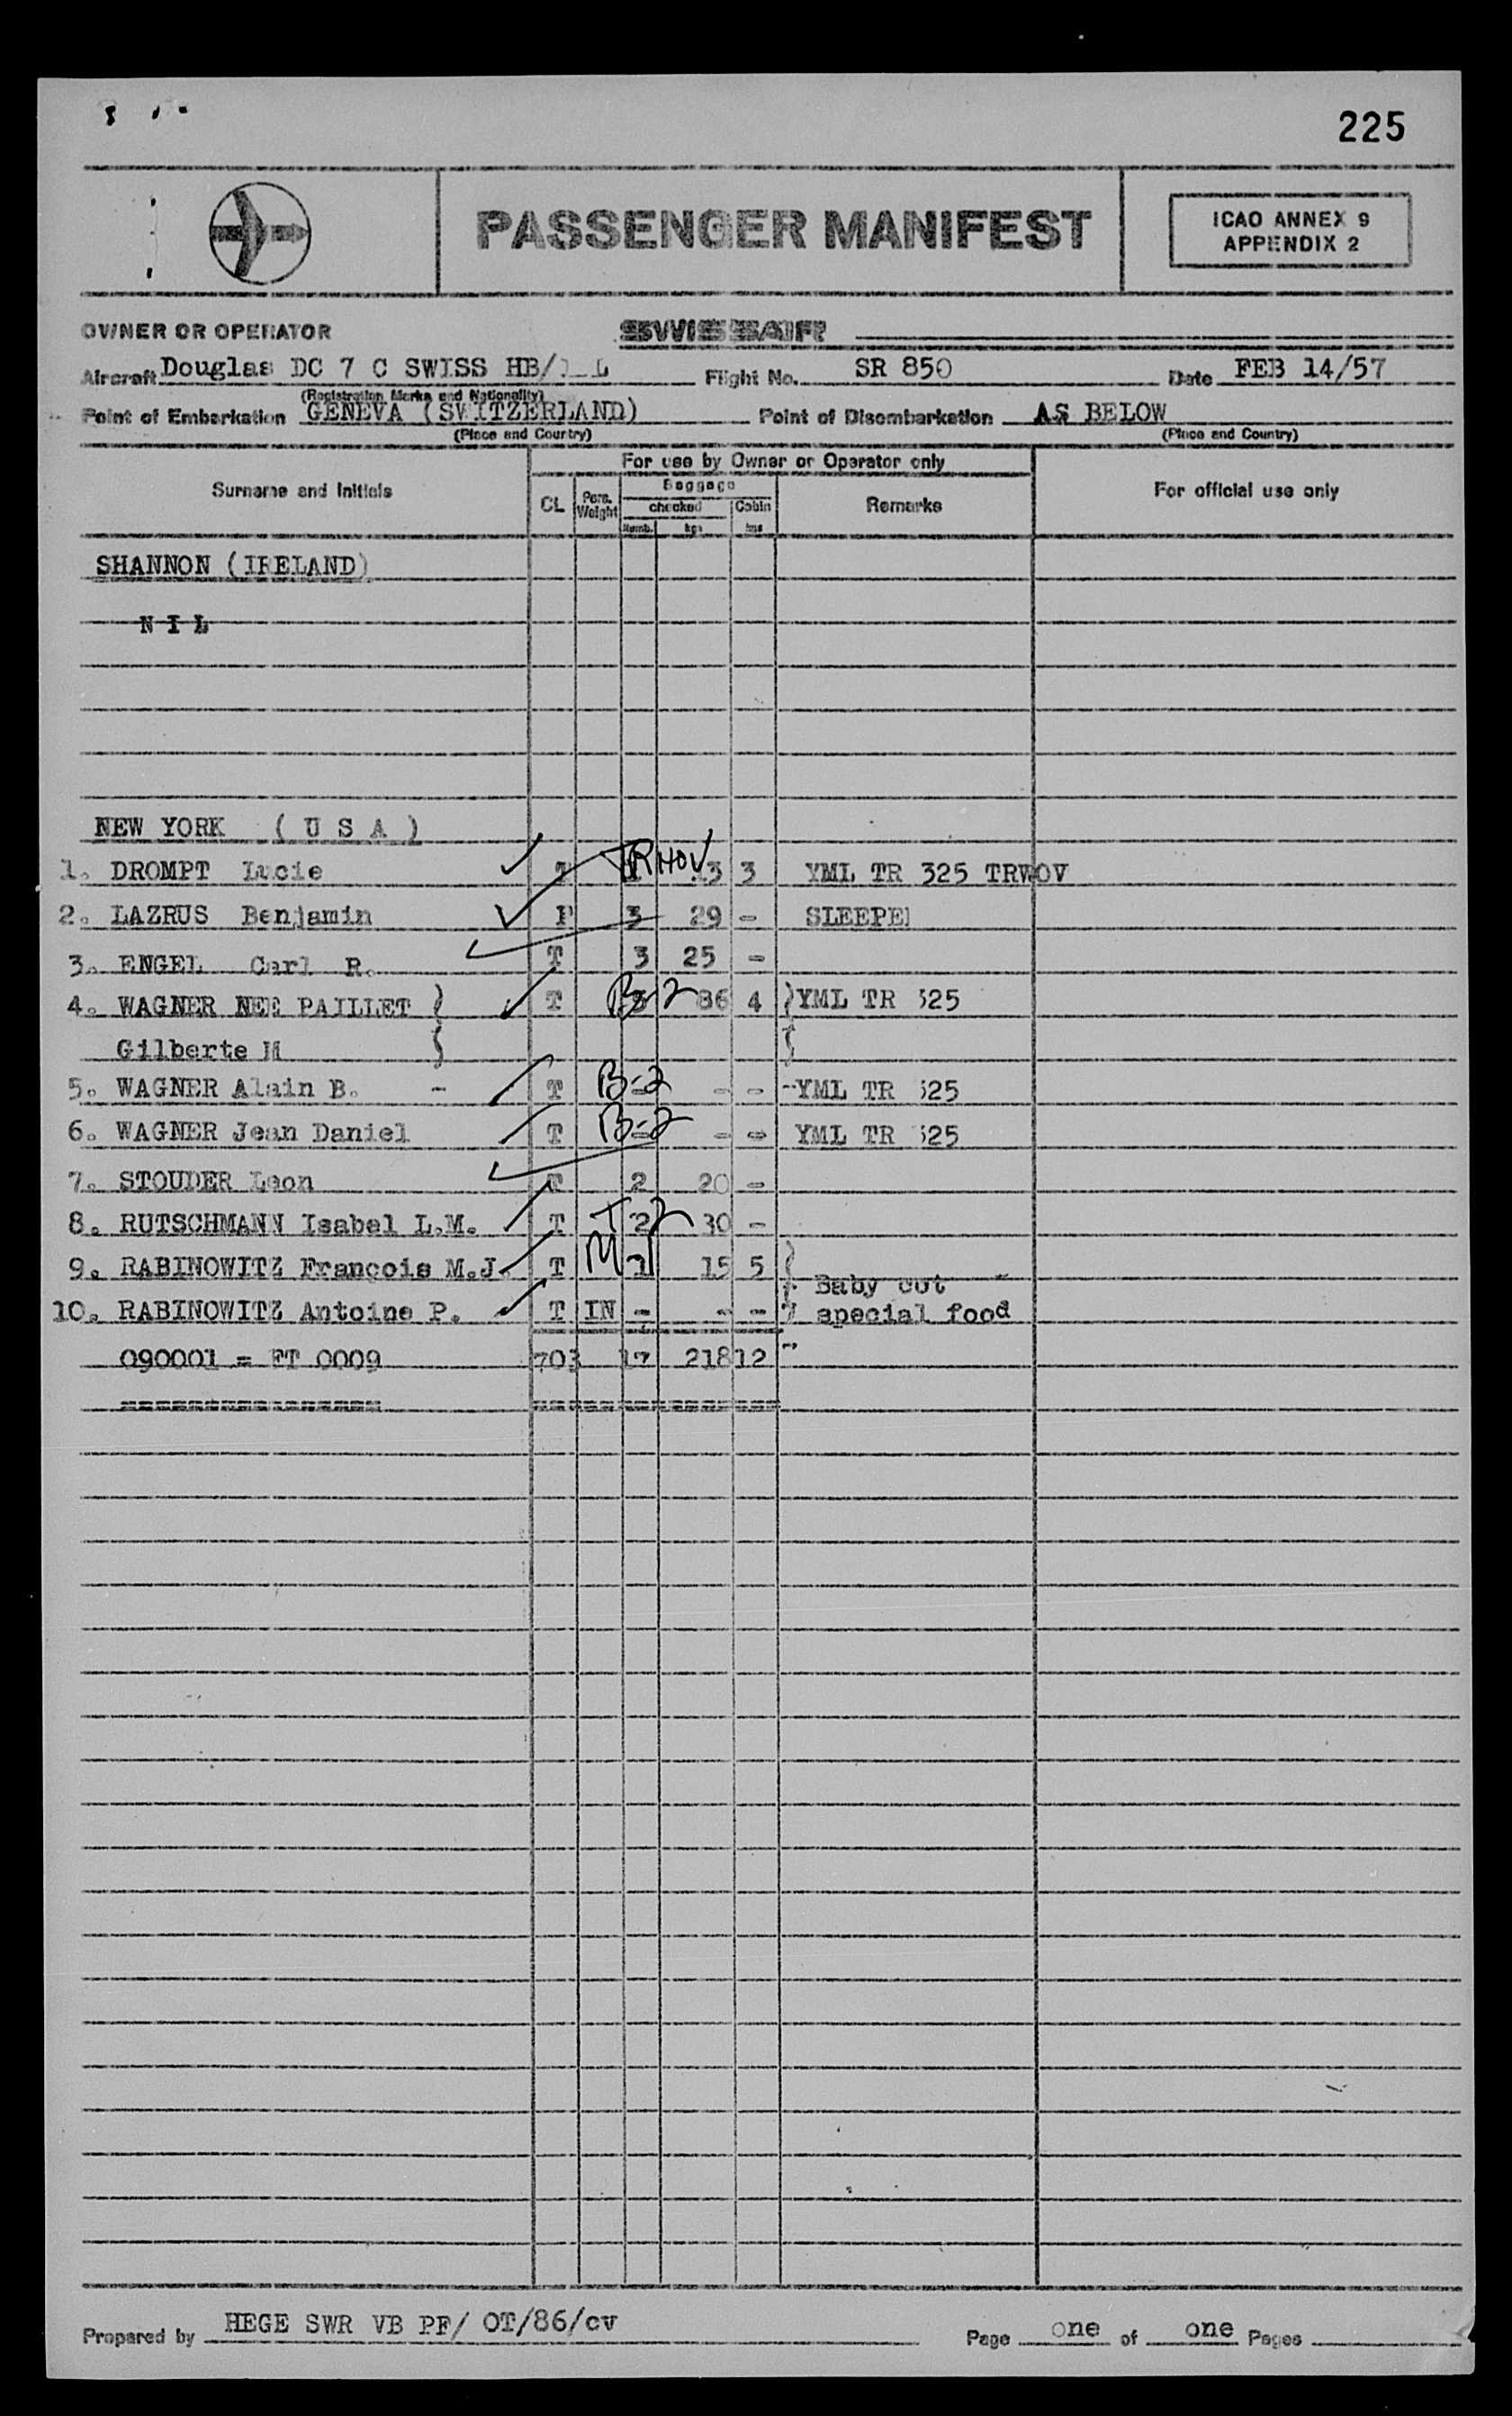 225
PASSENGER MANIFEST
ICAO ANNEX 9
APPENDIX 2
OWNER OR OPERATOR SWISSAIR
Aircraft Douglas DC 7 C SWISS Flight No. SR 850 Date FEB 14/57
(Registration Marks and Nationality)
Point of Embarkation GENEVA (SWITZERLAND) Point of Disembarkation AS BELOW
(Place and Country) (Place and Country)
For use by Owner or Operator only
Surname and Initials CL Pers. Weight Baggage checked Numb. kgs Cabin kgs Remarks For official use only
SHANNON (IRELAND)
N I L
NEW YORK ( U S A )
TRWOV
1. DROMPT Lucie T 3 YML TR 325 TRWOV
2. LAZRUS Benjamin F 3 29 - SLEEPER
3. ENGEL Carl R. T 3 25 -
4. WAGNER NEE PAILLET T B-2 86 4 YML TR 325
Gilberte M
5. WAGNER Alain B. - T B-2 - - - YML TR 325
6. WAGNER Jean Daniel T B-2 - - YML TR 325
7. STOUDER Leon T 2 20 -
8. RUTSCHMANN Isabel L.M. T 2 30 -
9. RABINOWITZ François M.J. T 1 15 5
Baby cot
10. RABINOWITZ Antoine P. T IN - - - special food
090001 = FT 0009 703 17 218 12
Prepared by HEGE SWR VB PF/ OT/86/cv Page one of one Pages